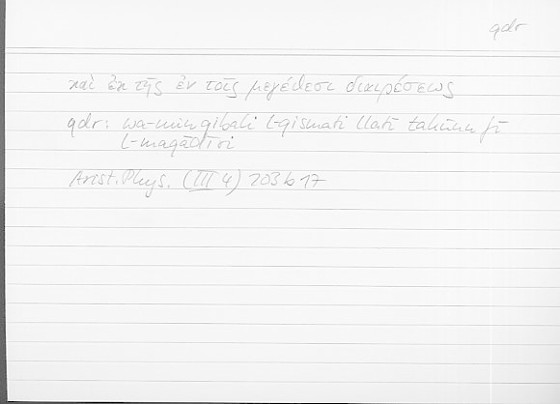 qdr
καὶ ἐκ τῆς ἐν τοῖς μεγέθεσι διαιρέσεως
qdr: wa-min qibali l-qismati llatī takūnu fī
l-maqādīri
Arist. Phys. (III 4) 203b17